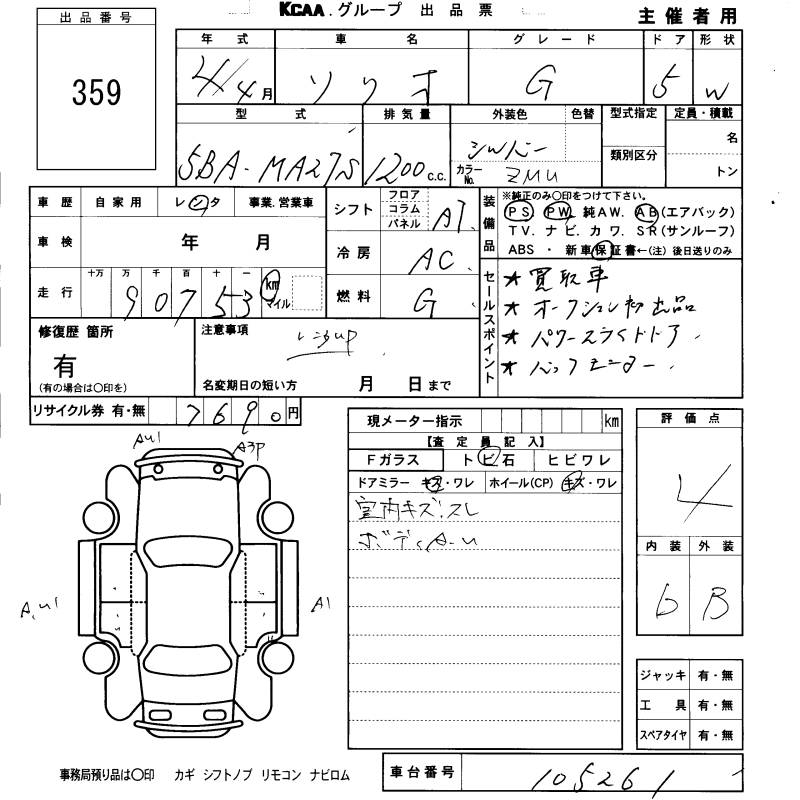 KCAA.グループ 出品票
主催者用
出品番号
359
年式 車名 グレード ドア 形状
4/4月 ソリオ G 5 W
型式 排気量 外装色 色替 型式指定 定員・積載
5BA-MA27S 1200c.c. シルバー 名
カラーNo. ZMU 類別区分 トン
車歴 自家用 レンタ 事業.営業車
シフト フロア コラム パネル AT
装備品 ※純正のみ○印をつけて下さい。
PS PW 純AW. AB(エアバック)
TV. ナビ. カワ. SR(サンルーフ)
ABS ・ 新車保証書←(注) 後日送りのみ
車検 年 月
冷房 AC
走行 十万 万 千 百 十 一
90753 km マイル
燃料 G
セールスポイント
★ 買取車
★ オークション初出品
★ パワースライドドア
★ バックモニター
修復歴 箇所
有
(有の場合は○印を)
注意事項
レンタup
名変期日の短い方 月 日まで
リサイクル券 有・無 7690円
現メーター指示 km
【査定員記入】
Fガラス トビ石 ヒビワレ
ドアミラー キズ・ワレ ホイール(CP) キズ・ワレ
室内キズ.スレ
ボディA.U
評価点
4
内装 外装
b B
AU1
A3P
A.U1
A1
ジャッキ 有・無
工具 有・無
スペアタイヤ 有・無
事務局預り品は○印 カギ シフトノブ リモコン ナビロム
車台番号 105261